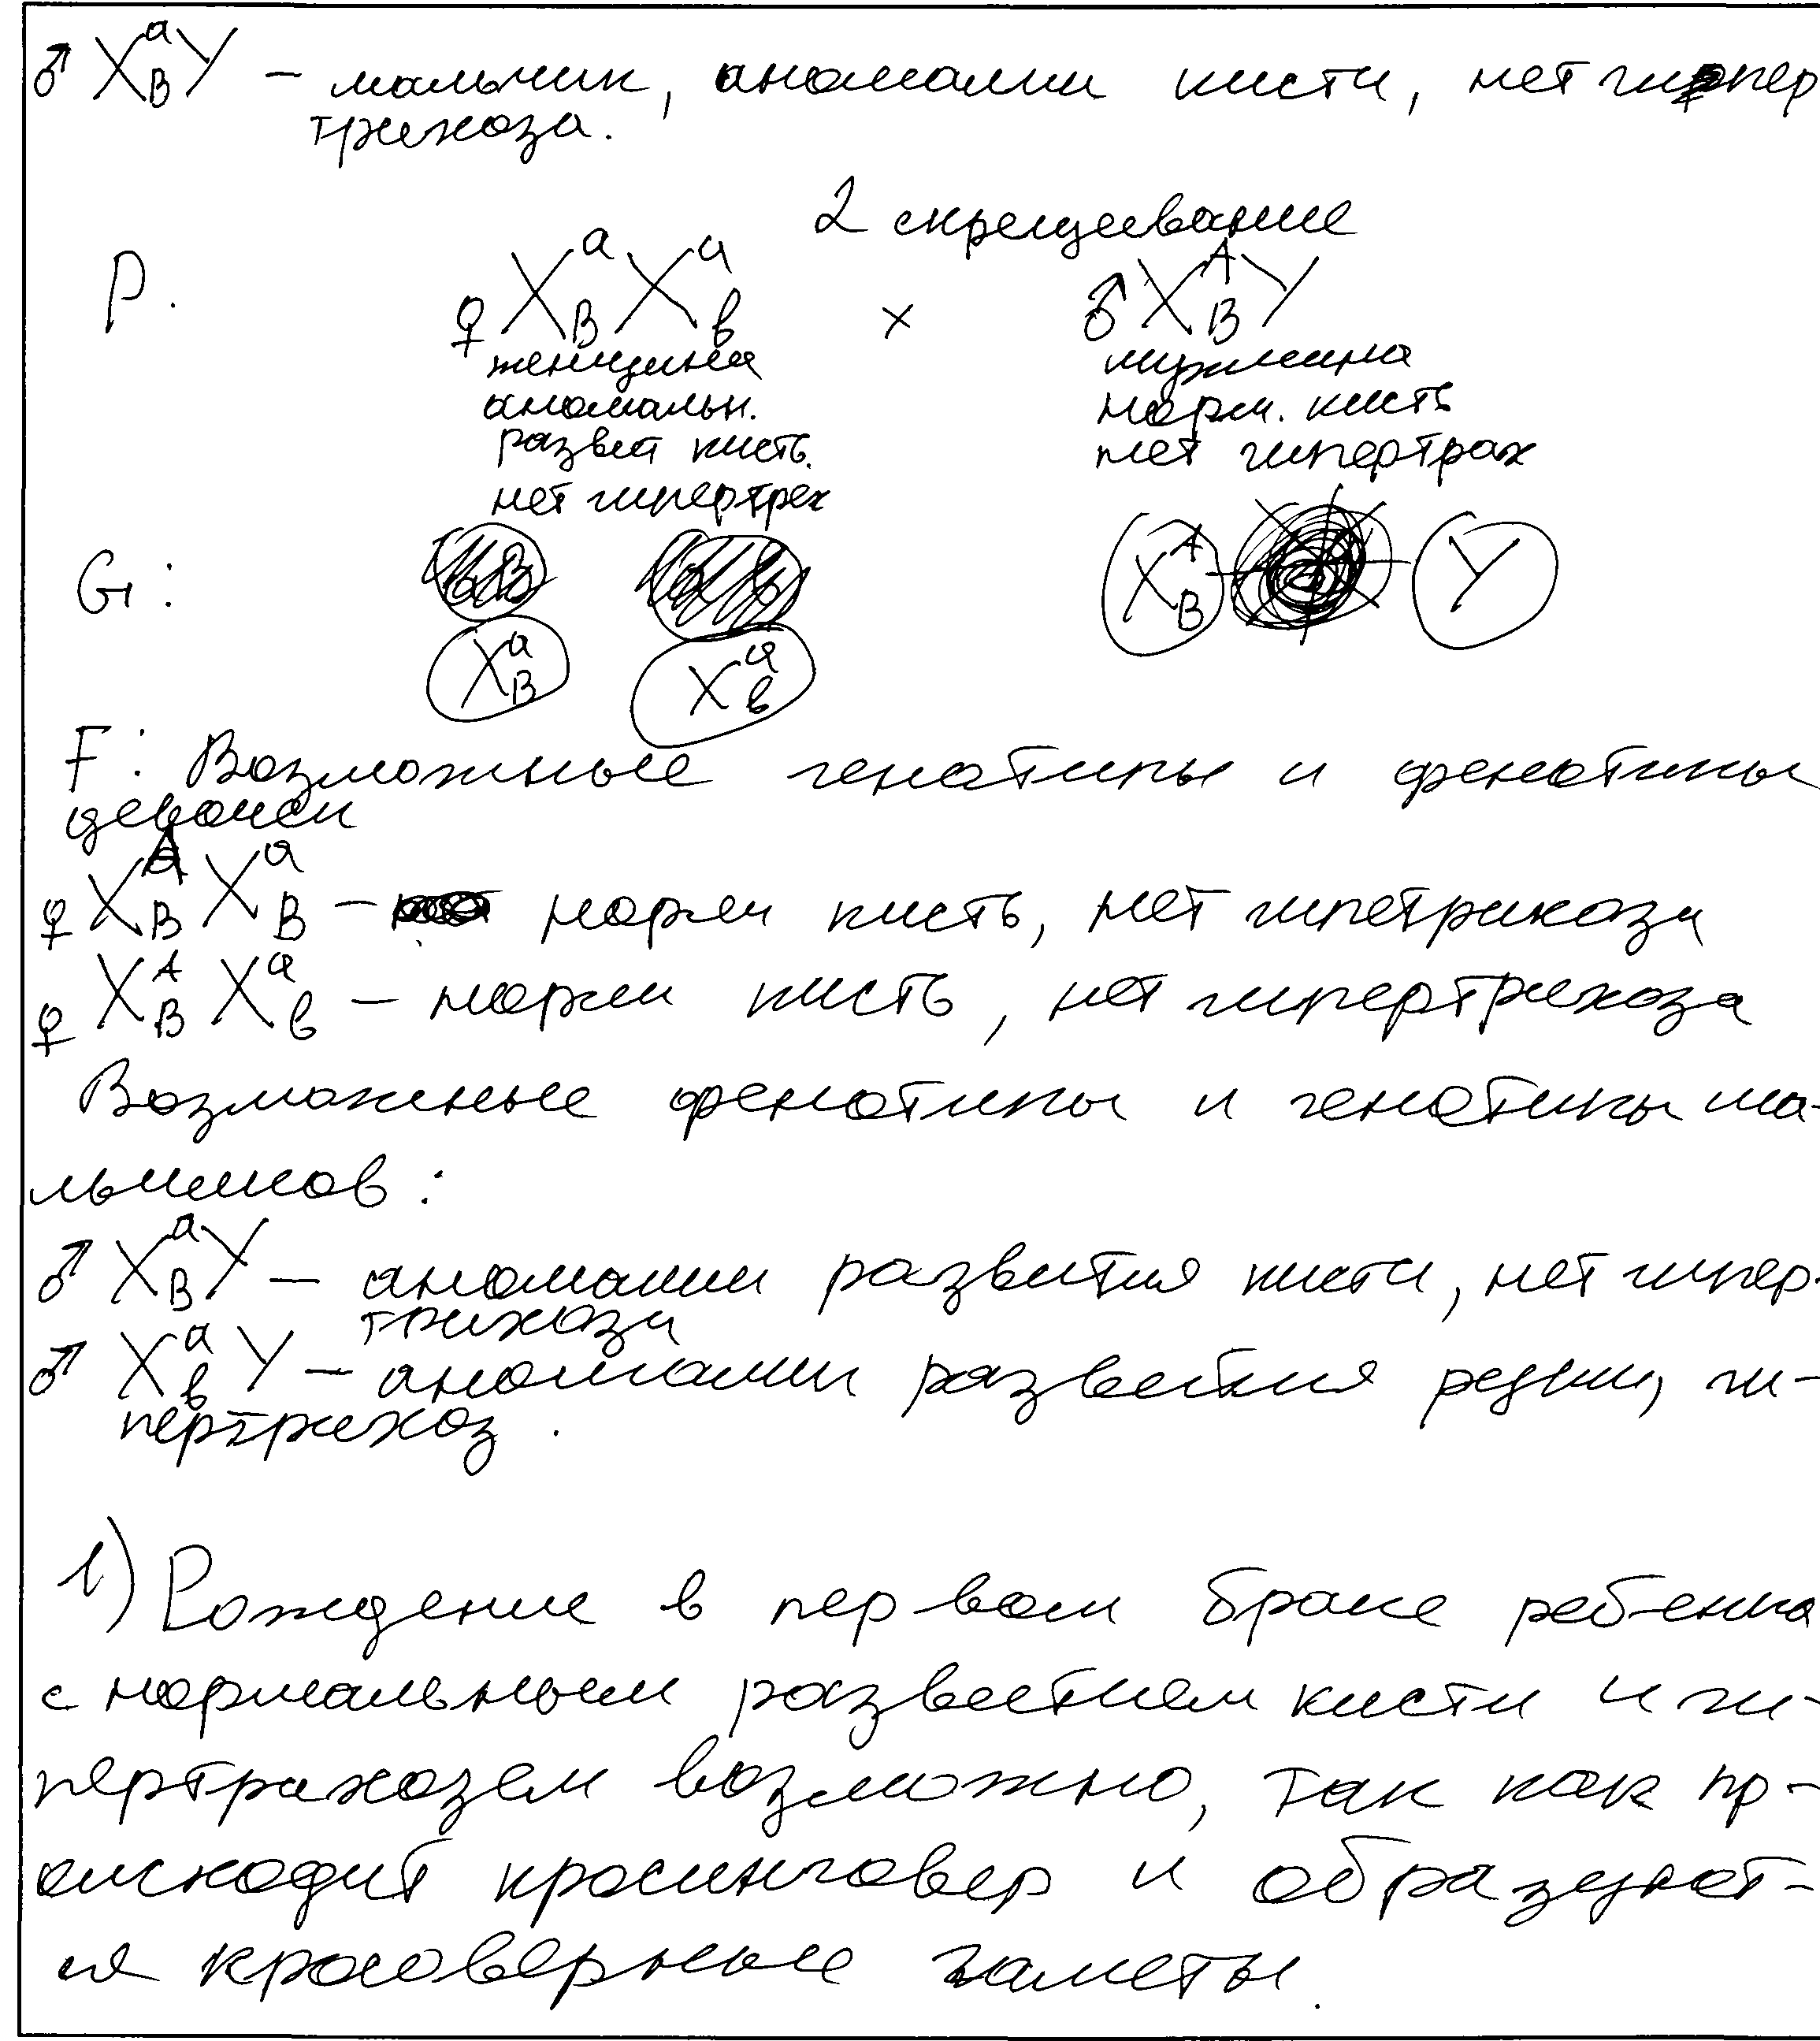 ♂ XᵃBY – мальчик, аномалии кисти, нет гипер
трихоза.
2 скрещивание
P. ♀ XᵃBXᵃв × ♂ XᴬBY
женщина мужчина
аномальн. норм. кисть
развит кисть. нет гипертрах
нет гипертрех
G: XᴬB Y
XᵃB Xᵃв
F: Возможные генотипы и фенотипы
девочек
♀ XᴬB XᵃB – норм кисть, нет гипетрихоза
♀ XᴬB Xᵃв – норм кисть, нет гипертрихоза
Возможные фенотипы и генотипы ма-
льчиков:
♂ XᵃBY – аномалии развития кисти, нет гипер-
трихоза
♂ Xᵃв Y – аномалии развития, ги-
пертрихоз.
1) Рождение в первом браке ребенка
с нормальным развитием кисти и ги-
пертрихозем возможно, так как пр-
оисходит кросинговер и образуют-
ся кросоверные гаметы.